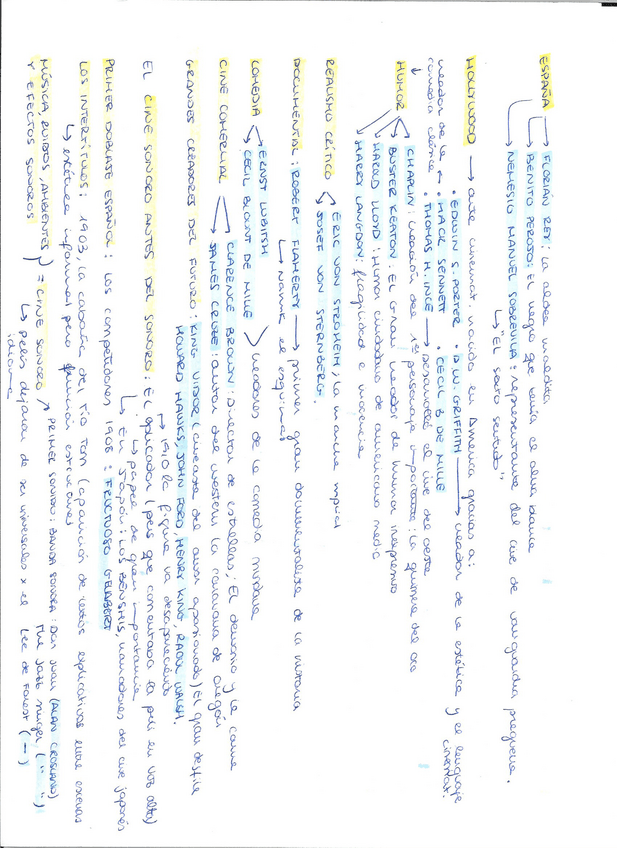 ESPAÑA → FLORIÁN REY: La aldea maldita
→ BENITO PEROJO: El negro que tenía el alma blanca
→ NEMESIO MANUEL SOBREVILA: representante del cine de vanguardia pregunta.
↳ "El sexto sentido"
HOLLYWOOD → arte cinemat. nacido en América gracias a:
• EDWIN S. PORTER • D.W. GRIFFITH → creador de la estética y el lenguaje cinemat.
creador de la ← • MACK SENNETT • CECIL B DE MILLE
comedia clásica • THOMAS H. INCE → desarrolló el cine del oeste
↓
HUMOR
CHAPLIN: creación del 1er personaje importante: La quimera del oro
BUSTER KEATON: El Gral creador de humor inexpresivo
HAROLD LLOYD: Humor ciudadano de americano medio
HARRY LANGDON: fragilidad e inocencia
REALISMO CRÍTICO → ERIC VON STROHEIM, La marcha nupcial
→ JOSEF VON STERNBERG.
DOCUMENTAL: ROBERT FLAHERTY → primer gran documentalista de la historia
↳ Nanuk el esquimal
COMEDIA → ERNST LUBITSH
→ CECIL BLOUNT DE MILLE > creadores de la comedia mundana
CINE COMERCIAL → CLARENCE BROWN: Director de estrellas; El demonio y la carne
→ JAMES CRUZE: autor del western la caravana de Oregón
GRANDES CREADORES DEL FUTURO: KING VIDOR (cineasta del amor apasionado) El gran desfile
HOWARD HAWKS, JOHN FORD, HENRY KING, RAOUL WALSH.
→ 1910 la figura va desapareciendo
EL CINE SONORO ANTES DEL SONORO: El explicador (pers que comentaba la peli en voz alta)
↳ papel de gran importancia
↳ En Japón: LOS BENSHIS, narradores del cine japonés
PRIMER DOBLAJE ESPAÑOL: Los competidores 1908: FRUCTUOSO GELABERT
LOS INTERTÍTULOS: 1903, la cabaña del tío Tom (aparición de textos explicativos entre escenas
↳ estética informal pero función estructural
MÚSICA, RUIDOS, AMBIENTES } = CINE SONORO ↗ PRIMER SONIDO: BANDA SONORA: Don Juan (ALAN CROSLAND)
Y EFECTOS SONOROS The Jazz singer, (" ")
↳ pelis dejaran de ser universales x el idioma
Lee de Forest (—)